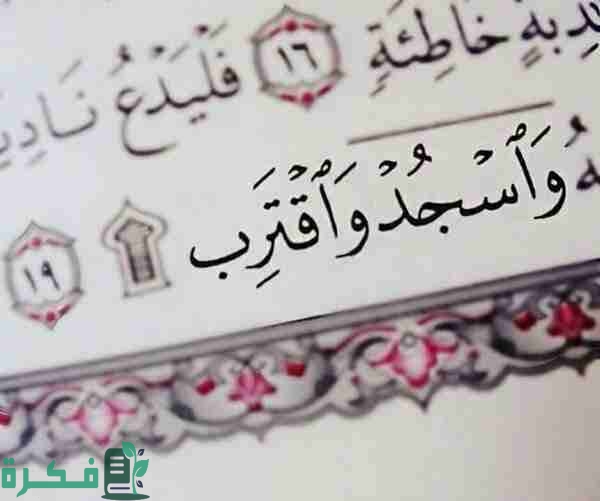 كَٰذِبَةٍ خَاطِئَةٍ ١٦ فَلْيَدْعُ نَادِيَ
هُ وَٱسْجُدْ وَٱقْتَرِب ۩ ١٩
فكرة